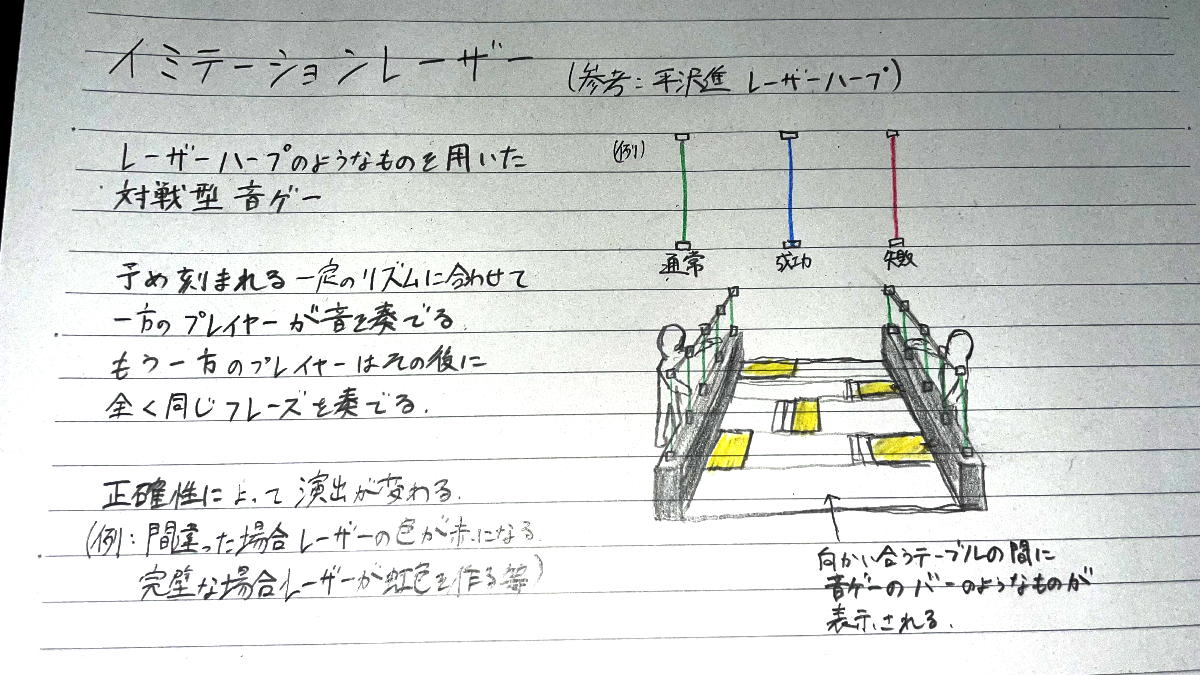 イミテーションレーザー
(参考：平沢進 レーザーハープ)
レーザーハープのようなものを用いた
対戦型 音ゲー
予め刻まれる一定のリズムに合わせて
一方のプレイヤーが音を奏でる
もう一方のプレイヤーはその後に
全く同じフレーズを奏でる.
正確性によって演出が変わる.
(例：間違った場合レーザーの色が赤になる
完璧な場合レーザーが虹色を作る等)
(例)
通常
成功
失敗
向かい合うテーブルの間に
音ゲーのバーのようなものが
表示される.